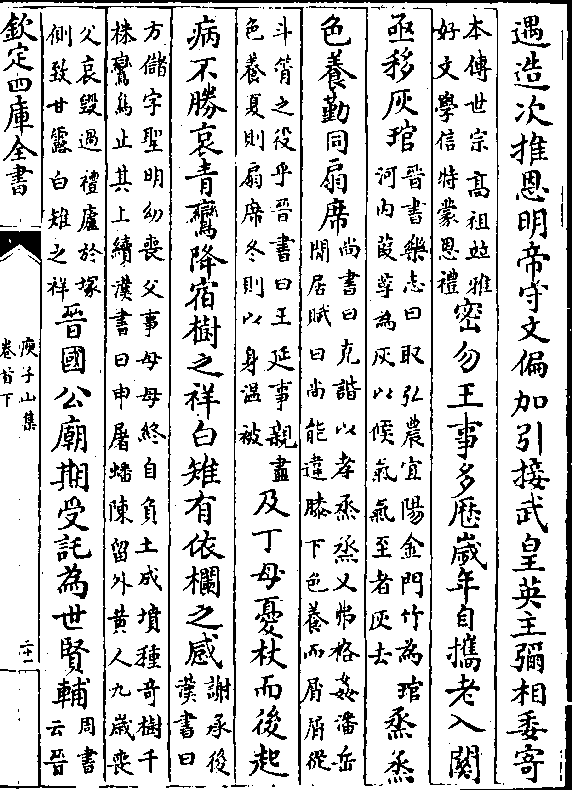 遇造次推恩明帝守文偏加引接武皇英主彌相委寄
本傳世宗髙祖竝雅
好文學信特蒙恩禮
密勿王事多歴嵗年自攜老入闗
亟移灰琯
晉書樂志曰取弘農宜陽金門竹為琯
河内葭莩為灰以候氣氣至者灰去
烝烝
色養勤同扇席
尚書曰克諧以孝烝烝乂弗格姦潘岳
閒居賦曰尚能違膝下色養而屑屑從
斗筲之役乎晉書曰王延事親盡
色養夏則扇席冬則以身温被
及丁母憂杖而後起
病不勝哀青鸞降宿樹之祥白雉有依欄之感
謝承後
漢書曰
方儲字聖明幼喪父事母母終自負土成墳種奇樹千
株鸞鳥止其上續漢書曰申屠蟠陳留外黄人九嵗喪
父哀毀過禮廬於塜
側致甘露白雉之祥
晉國公廟期受託為世賢輔
周書
云晉
欽定四庫全書
庾子山集
卷首下
二十一